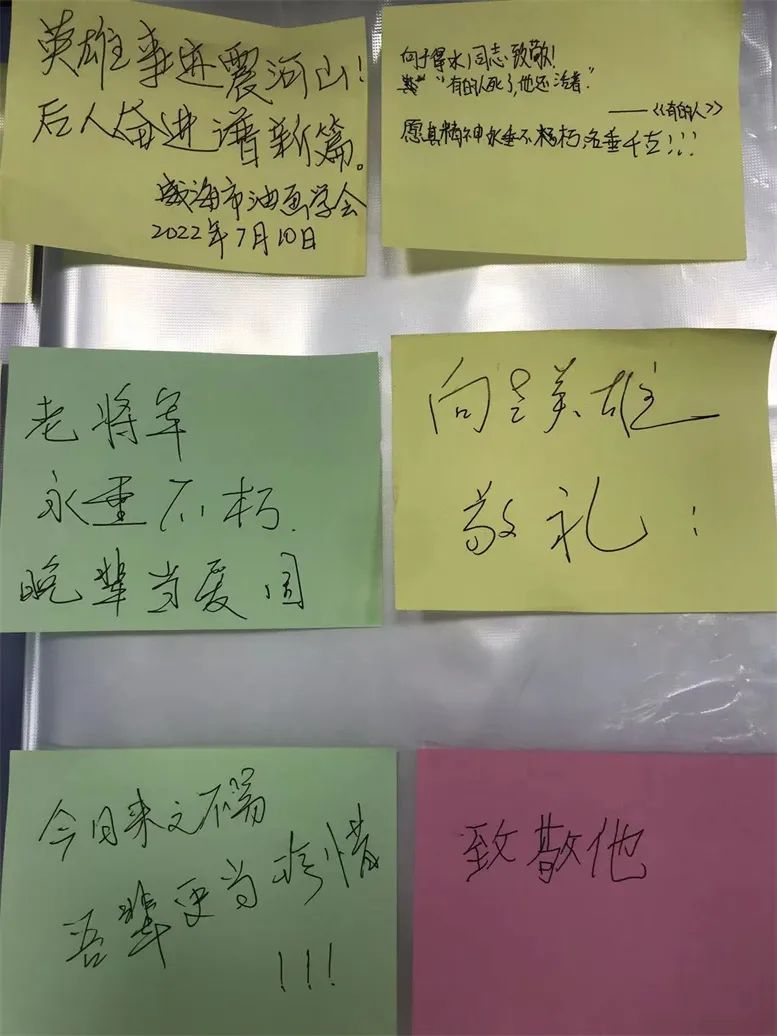 英雄事迹震河山！
后人奋进谱新篇。
威海市油画学会
2022年7月10日
向于得水同志致敬！
“有的人死了，他还活着”
——《有的人》
愿其精神永垂不朽，名垂千古！！！
老将军
永垂不朽.
晚辈当爱国
向老英雄
敬礼！
今日来之不易
吾辈更当珍惜
！！！
致敬他